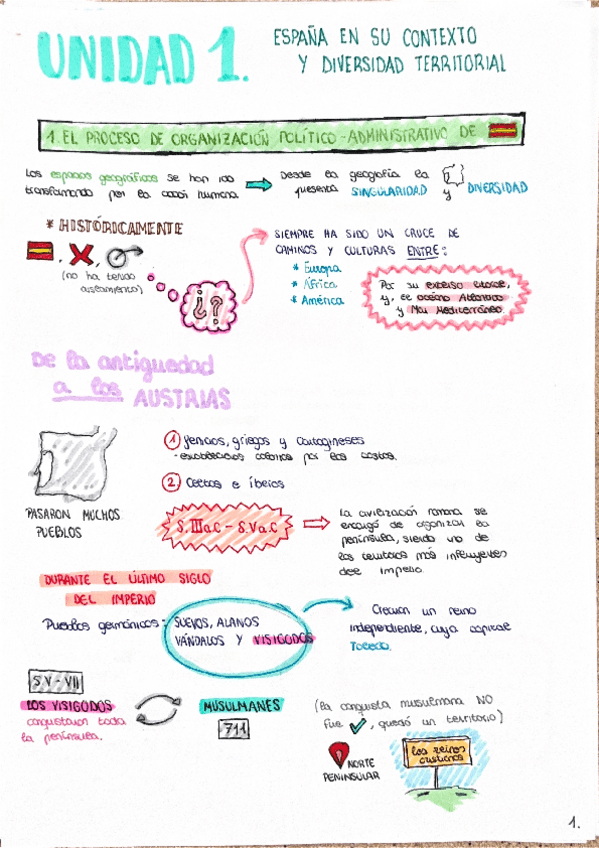 UNIDAD 1.
ESPAÑA EN SU CONTEXTO
Y DIVERSIDAD TERRITORIAL
1. EL PROCESO DE ORGANIZACIÓN POLÍTICO-ADMINISTRATIVO DE
Los espacios geográficos se han ido
transformando por la acción humana
Desde la geografía la
presenta SINGULARIDAD y DIVERSIDAD
* HISTÓRICAMENTE
(no ha tenido
aislamiento)
¿?
SIEMPRE HA SIDO UN CRUCE DE
CAMINOS Y CULTURAS ENTRE:
* Europa
* África
* América
Por su
y, el océano Atlántico
y Mar Mediterráneo
De la antigüedad
a los AUSTRIAS
PASARON MUCHOS
PUEBLOS
1 fenicios, griegos y cartagineses
- establecidos por las costas.
2 Celtas e íberos
S.III a.C - S.V a.C
La civilización romana se
encargó de organizar la
península, siendo uno de
los territorios más influyentes
del imperio.
DURANTE EL ÚLTIMO SIGLO
DEL IMPERIO
Pueblos germánicos: SUEVOS, ALANOS
VÁNDALOS Y VISIGODOS
Crearon un reino
independiente, cuya capital
Toledo.
S V - VII
LOS VISIGODOS
conquistaron toda
la península.
MUSULMANES
711
(la conquista musulmana NO
fue , quedó un territorio)
NORTE
PENINSULAR
los reinos
cristianos
1.